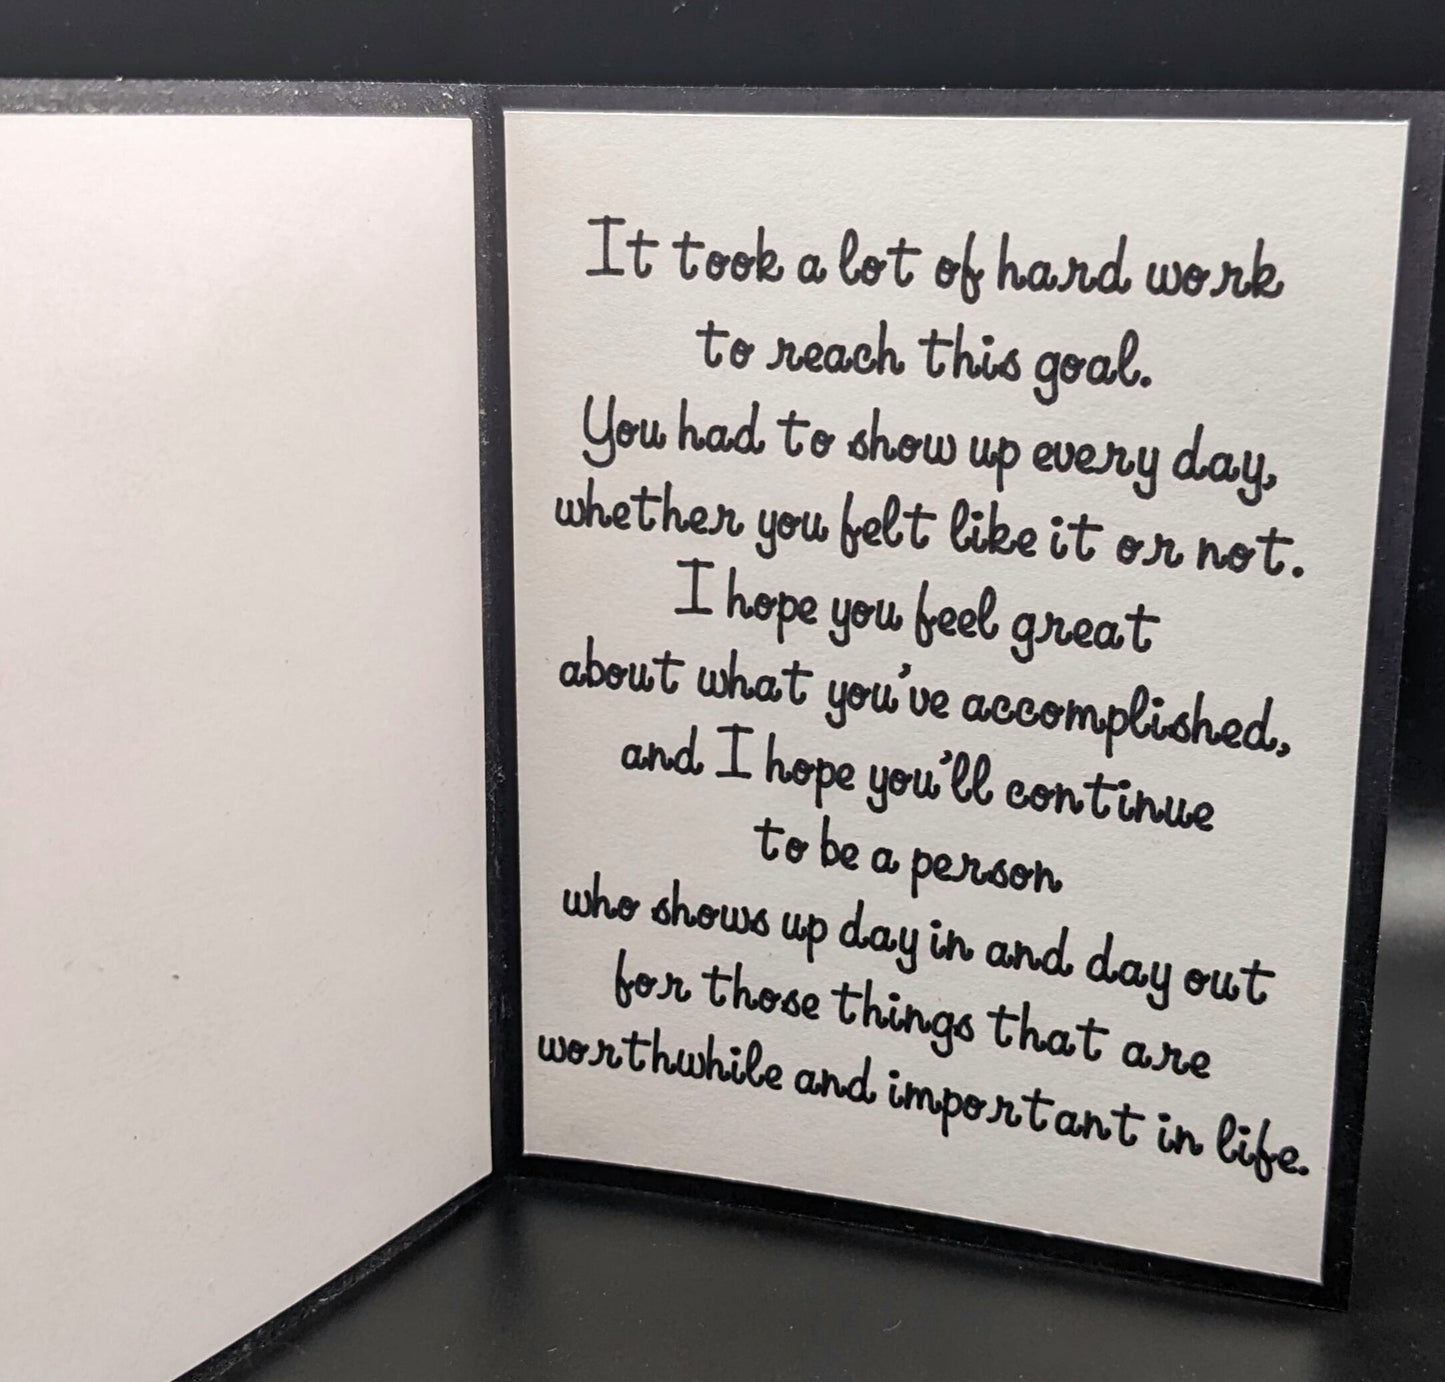 It took a lot of hard work
to reach this goal.
You had to show up every day,
whether you felt like it or not.
I hope you feel great
about what you've accomplished,
and I hope you'll continue
to be a person
who shows up day in and day out
for those things that are
worthwhile and important in life.